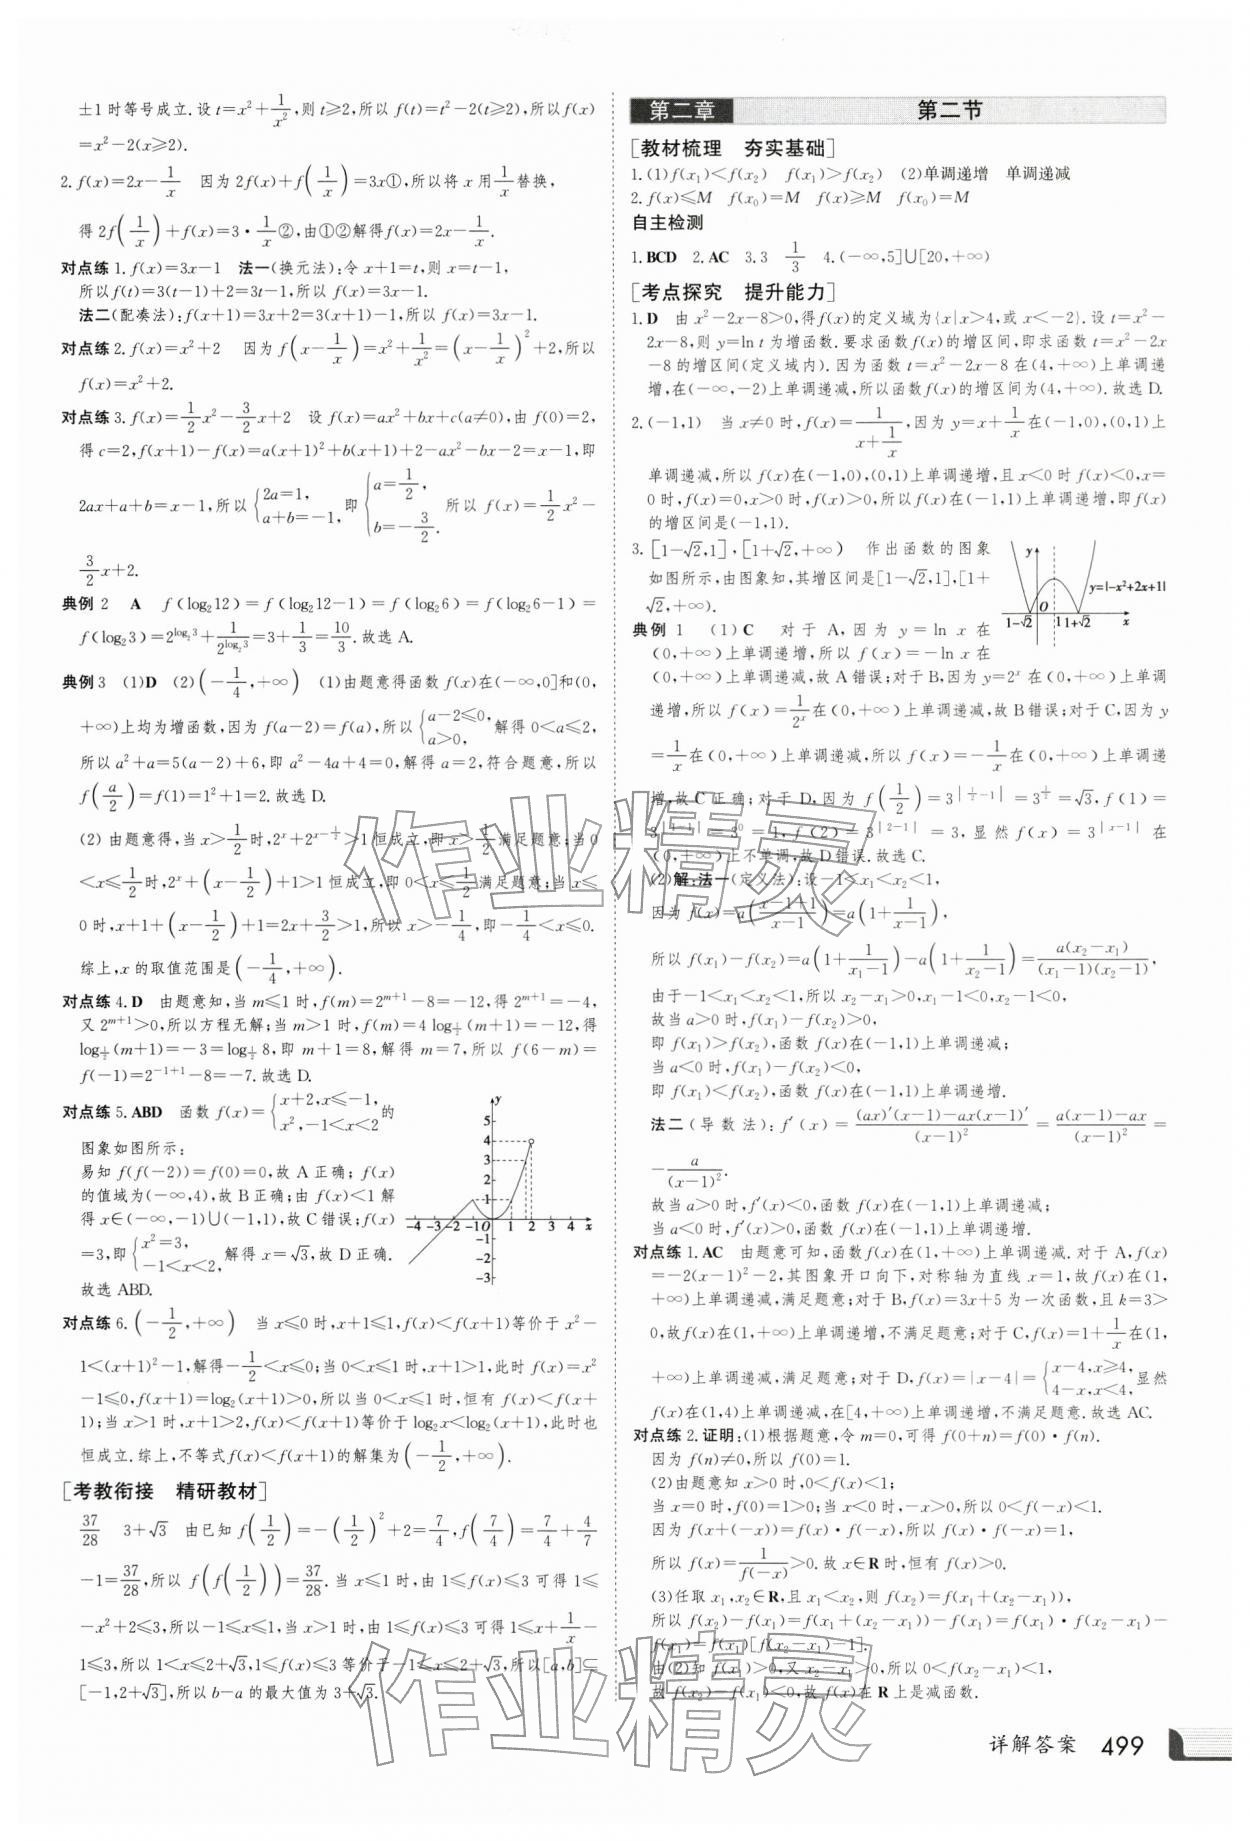 ±1时等号成立.设t=x²+1/x²,则t≥2,所以f(t)=t²-2(t≥2),所以f(x)
=x²-2(x≥2).
2.f(x)=2x-1/x 因为2f(x)+f(1/x)=3x①,所以将x用1/x替换,
得2f(1/x)+f(x)=3·1/x②,由①②解得f(x)=2x-1/x.
对点练1.f(x)=3x-1 法一(换元法):令x+1=t,则x=t-1,
所以f(t)=3(t-1)+2=3t-1,所以f(x)=3x-1.
法二(配凑法):f(x+1)=3x+2=3(x+1)-1,所以f(x)=3x-1.
对点练2.f(x)=x²+2 因为f(x-1/x)=x²+1/x²=(x-1/x)²+2,所以
f(x)=x²+2.
对点练3.f(x)=1/2x²-3/2x+2 设f(x)=ax²+bx+c(a≠0),由f(0)=2,
得c=2,f(x+1)-f(x)=a(x+1)²+b(x+1)+2-ax²-bx-2=x-1,即
2ax+a+b=x-1,所以{2a=1,a+b=-1,即{a=1/2,b=-3/2.所以f(x)=1/2x²-
3/2x+2.
典例2 A f(log₂12)=f(log₂12-1)=f(log₂6)=f(log₂6-1)=
f(log₂3)=2^(log₂3)+1/2^(log₂3)=3+1/3=10/3.故选A.
典例3 (1)D (2)(-1/4,+∞) (1)由题意得函数f(x)在(-∞,0]和(0,
+∞)上均为增函数,因为f(a-2)=f(a),所以{a-2≤0,a>0,解得0<a≤2,
所以a²+a=5(a-2)+6,即a²-4a+4=0,解得a=2,符合题意,所以
f(a/2)=f(1)=1²+1=2.故选D.
(2)由题意得,当x>1/2时,2^x+2^(x-1/2)>1恒成立,即x>1/2满足题意;当0
<x≤1/2时,2^x+(x-1/2)+1>1恒成立,即0<x≤1/2满足题意;当x≤
0时,x+1+(x-1/2)+1=2x+3/2>1,所以x>-1/4,即-1/4<x≤0.
综上,x的取值范围是(-1/4,+∞).
对点练4.D 由题意知,当m≤1时,f(m)=2^(m+1)-8=-12,得2^(m+1)=-4,
又2^(m+1)>0,所以方程无解;当m>1时,f(m)=4log_(1/2)(m+1)=-12,得
log_(1/2)(m+1)=-3=log_(1/2)8,即m+1=8,解得m=7,所以f(6-m)=
f(-1)=2^(-1+1)-8=-7.故选D.
对点练5.ABD 函数f(x)={x+2,x≤-1,x²,-1<x<2的
图象如图所示:
易知f(f(-2))=f(0)=0,故A正确;f(x)
的值域为(-∞,4),故B正确;由f(x)<1解
得x∈(-∞,-1)∪(-1,1),故C错误;f(x)
=3,即{x²=3,-1<x<2,解得x=√3,故D正确.
故选ABD.
y
5
4
3
2
1
-4 -3 -2 -1 O 1 2 3 4 x
-1
-2
-3
对点练6.(-1/2,+∞) 当x≤0时,x+1≤1,f(x)<f(x+1)等价于x²-
1<(x+1)²-1,解得-1/2<x≤0;当0<x≤1时,x+1>1,此时f(x)=x²
-1≤0,f(x+1)=log₂(x+1)>0,所以当0<x≤1时,恒有f(x)<f(x+
1);当x>1时,x+1>2,f(x)<f(x+1)等价于log₂x<log₂(x+1),此时也
恒成立.综上,不等式f(x)<f(x+1)的解集为(-1/2,+∞).
[考教衔接 精研教材]
37/28 3+√3 由已知f(1/2)=-(1/2)²+2=7/4,f(7/4)=7/4+4/7
-1=37/28,所以f(f(1/2))=37/28.当x≤1时,由1≤f(x)≤3可得1≤
-x²+2≤3,所以-1≤x≤1,当x>1时,由1≤f(x)≤3可得1≤x+1/x-
1≤3,所以1<x≤2+√3,1≤f(x)≤3等价于-1≤x≤2+√3,所以[a,b]⊆
[-1,2+√3],所以b-a的最大值为3+√3.
第二章 第二节
[教材梳理 夯实基础]
1.(1)f(x₁)<f(x₂) f(x₁)>f(x₂) (2)单调递增 单调递减
2.f(x)≤M f(x₀)=M f(x)≥M f(x₀)=M
自主检测
1.BCD 2.AC 3.3 1/3 4.(-∞,5]∪[20,+∞)
[考点探究 提升能力]
1.D 由x²-2x-8>0,得f(x)的定义域为{x|x>4,或x<-2}.设t=x²-
2x-8,则y=ln t为增函数.要求函数f(x)的增区间,即求函数t=x²-2x
-8的增区间(定义域内).因为函数t=x²-2x-8在(4,+∞)上单调递
增,在(-∞,-2)上单调递减,所以函数f(x)的增区间为(4,+∞).故选D.
2.(-1,1) 当x≠0时,f(x)=1/(x+1/x),因为y=x+1/x在(-1,0),(0,1)上
单调递减,所以f(x)在(-1,0),(0,1)上单调递增,且x<0时f(x)<0,x=
0时,f(x)=0,x>0时,f(x)>0,所以f(x)在(-1,1)上单调递增,即f(x)
的增区间是(-1,1).
3.[1-√2,1],[1+√2,+∞) 作出函数的图象
如图所示,由图象知,其增区间是[1-√2,1],[1+
√2,+∞).
y
y=|-x²+2x+1|
O
1-√2 1 1+√2 x
典例1 (1)C 对于A,因为y=ln x在
(0,+∞)上单调递增,所以f(x)=-ln x在
(0,+∞)上单调递减,故A错误;对于B,因为y=2^x在(0,+∞)上单调
递增,所以f(x)=1/2^x在(0,+∞)上单调递减,故B错误;对于C,因为y
=1/x在(0,+∞)上单调递减,所以f(x)=-1/x在(0,+∞)上单调递
增,故C正确;对于D,因为f(1/2)=3^|1/2-1|=3^(1/2)=√3,f(1)=
3^|1-1|=3⁰=1,f(2)=3^|2-1|=3,显然f(x)=3^|x-1|在
(0,+∞)上不单调,故D错误.故选C.
(2)解:法一(定义法):设-1<x₁<x₂<1,
因为f(x)=a((x-1+1)/(x-1))=a(1+1/(x-1)),
所以f(x₁)-f(x₂)=a(1+1/(x₁-1))-a(1+1/(x₂-1))=a(x₂-x₁)/((x₁-1)(x₂-1)),
由于-1<x₁<x₂<1,所以x₂-x₁>0,x₁-1<0,x₂-1<0,
故当a>0时,f(x₁)-f(x₂)>0,
即f(x₁)>f(x₂),函数f(x)在(-1,1)上单调递减;
当a<0时,f(x₁)-f(x₂)<0,
即f(x₁)<f(x₂),函数f(x)在(-1,1)上单调递增.
法二(导数法):f′(x)=((ax)′(x-1)-ax(x-1)′)/(x-1)²=(a(x-1)-ax)/(x-1)²=
-a/(x-1)².
故当a>0时,f′(x)<0,函数f(x)在(-1,1)上单调递减;
当a<0时,f′(x)>0,函数f(x)在(-1,1)上单调递增.
对点练1.AC 由题意可知,函数f(x)在(1,+∞)上单调递减.对于A,f(x)
=-2(x-1)²-2,其图象开口向下,对称轴为直线x=1,故f(x)在(1,
+∞)上单调递减,满足题意;对于B,f(x)=3x+5为一次函数,且k=3>
0,故f(x)在(1,+∞)上单调递增,不满足题意;对于C,f(x)=1+1/x在(1,
+∞)上单调递减,满足题意;对于D,f(x)=|x-4|={x-4,x≥4,4-x,x<4,显然
f(x)在(1,4)上单调递减,在[4,+∞)上单调递增,不满足题意.故选AC.
对点练2.证明:(1)根据题意,令m=0,可得f(0+n)=f(0)·f(n).
因为f(n)≠0,所以f(0)=1.
(2)由题意知x>0时,0<f(x)<1;
当x=0时,f(0)=1>0;当x<0时,-x>0,所以0<f(-x)<1.
因为f(x+(-x))=f(x)·f(-x),所以f(x)·f(-x)=1,
所以f(x)=1/f(-x)>0.故x∈R时,恒有f(x)>0.
(3)任取x₁,x₂∈R,且x₁<x₂,则f(x₂)=f(x₁+(x₂-x₁)),
所以f(x₂)-f(x₁)=f(x₁+(x₂-x₁))-f(x₁)=f(x₁)·f(x₂-x₁)-
f(x₁)=f(x₁)[f(x₂-x₁)-1].
由(2)知f(x₁)>0,又x₂-x₁>0,所以0<f(x₂-x₁)<1,
故f(x₂)-f(x₁)<0,故f(x)在R上是减函数.
作业精灵
作业精灵
详解答案 499